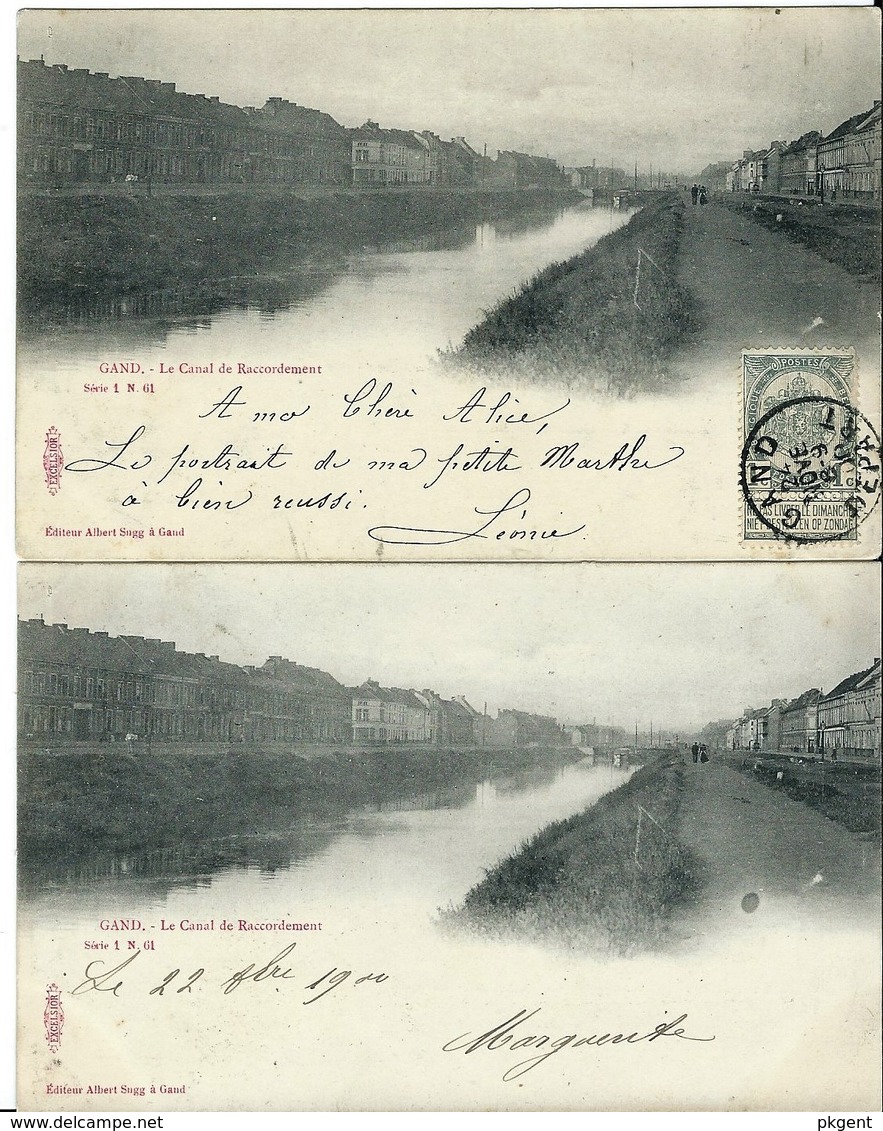 GAND. - Le Canal de Raccordement
Série 1 N. 61
A ma Chère Alice,
Le portrait de ma petite Marthe
à bien reussi.
Léonie
EXCELSIOR
Éditeur Albert Sugg à Gand
POSTES
1 C
NE PAS LIVRER LE DIMANCHE
NIET BESTELLEN OP ZONDAG
GAND
DEPART
GAND. - Le Canal de Raccordement
Série 1 N. 61
Le 22 1900
Marguerite
EXCELSIOR
Éditeur Albert Sugg à Gand
pkgent